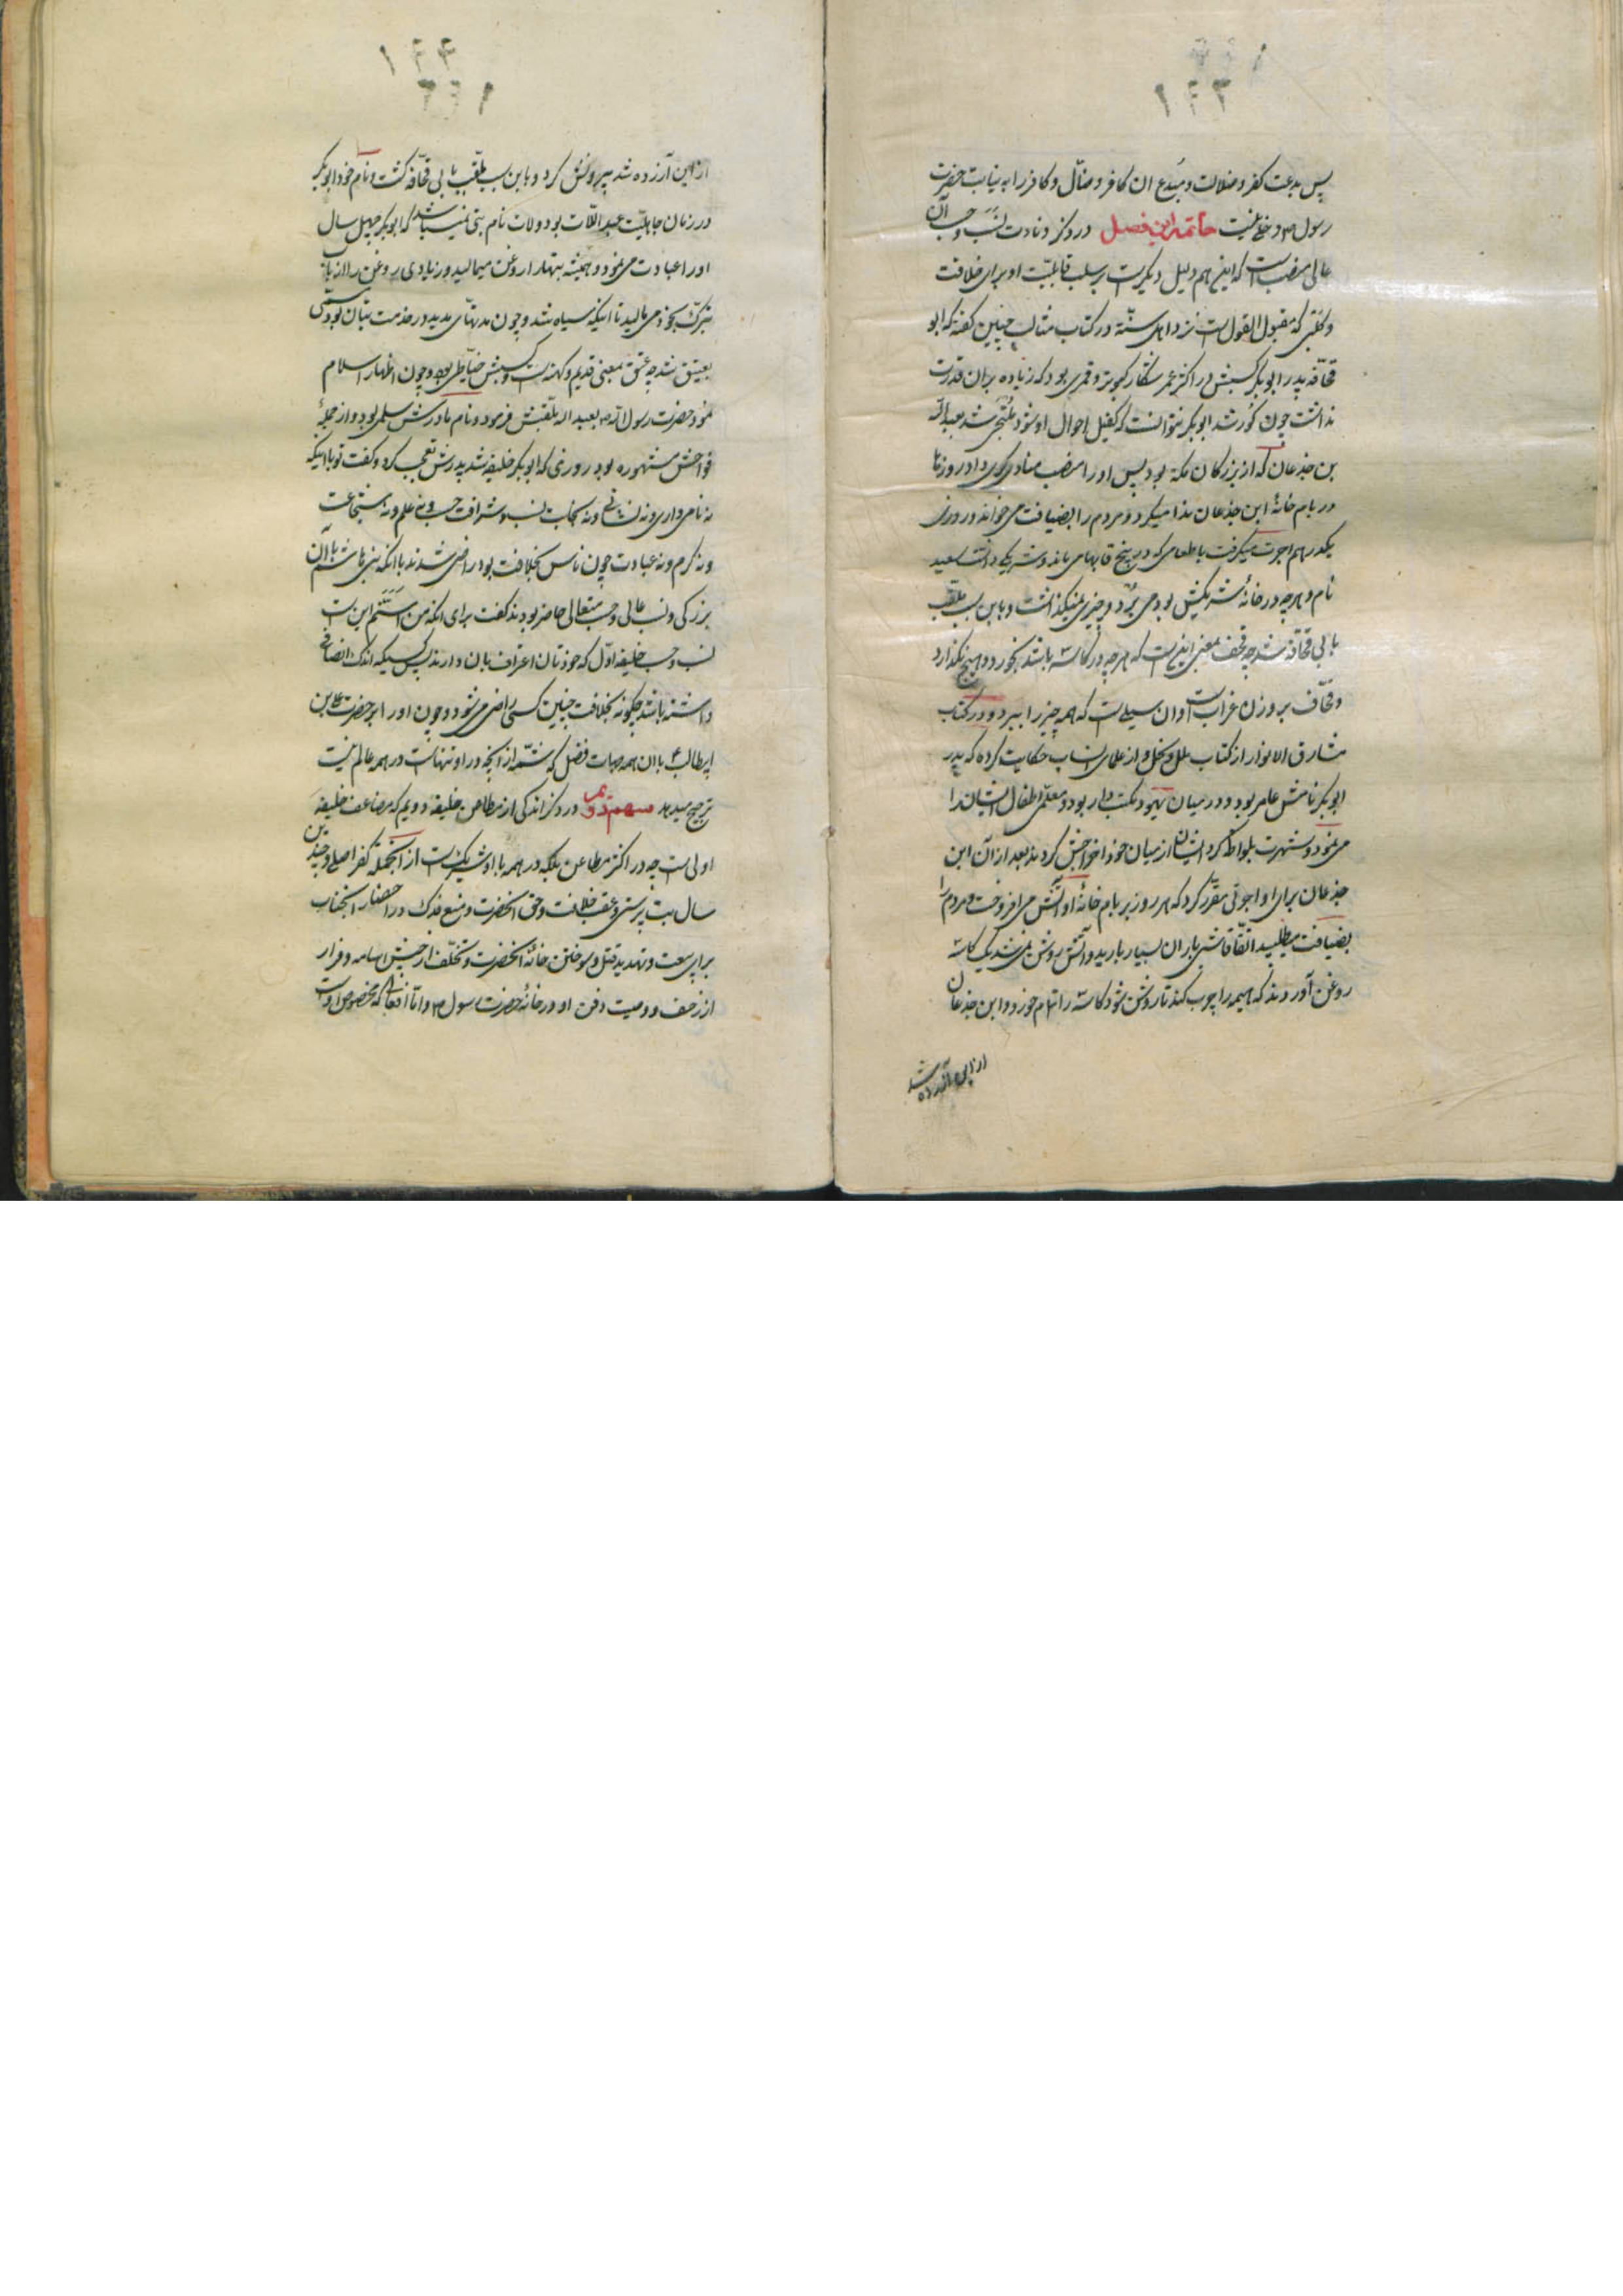 ۱۴۳
پس بدعت کفر و ضلالت و مبدع ان کافر و ضالّ و کافر را به نیابت حضرت
رسول ص دخلی نیست خاتمه این فصل در ذکر دنائت نسب و حسب آن
عالی منصب است که اینهم دلیل دیگریست بر سلب قابلیّت او برای خلافت
و کلبی که مقبول القول است نزد اهل سنّة در کتاب مثالب چنین گفته که ابو
قحّافه پدر ابو بکر کسبش در اکثر عمر شکار کبوتر و قمری بود که زیاده بر ان قدرت
نداشت چون کور شد ابو بکر نتوانست که کفیل احوال او شود ملتجی شد بعبد الله
بن جذعان که از بزرکان مکّه بود پس او را منصب منادی کری داد و روزها
در بام خانهٔ ابن جذعان ندا میکرد و مردم را بضیافت می خواند و روزی
یکدرهم اجرت میکرفت با طعامی که در بیخ قابهامی ماند و شریکی داشت سعید
نام و هرچه در خانهٔ شریکش بود می برد و چیزی نمیگذاشت و باین سبب ملقب
بابی قحّافه شد چه قحف بمعنی اینست که هرچه در کاسه باشد بخورد و هیچ نکذارد
و قحّاف بروزن غراب است و ان سیلی است که همه چیز را ببرد و در کتاب
مشارق الانوار از کتاب ملل و نحل و از علمای انساب حکایت کرده که پدر
ابو بکر نامش عامر بود و در میان یهود مکتب دار بود و معلّمی اطفال ایشان را
می نمود و شهرت بلواط کرد ایشان از میان خود اخراجش کردند بعد از آن ابن
جذعان برای او اجرتی مقرّر کرد که هر روز بر بام خانهٔ او آتش می افروخت و مردم را
بضیافت میطلبید اتّفاقا شبی باران بسیار بارید و آتش روشن نمی شد یک کاسه
روغن آوردند که هیمه را چرب کند تا روشن شود کاسه را تمام خورد و ابن جذعان
ازین آزرده شد
۱۴۴
از این آزرده شد بیرونش کرد و باین سبب ملقّب بابی قحّافه کشت و نام خود ابو بکر
در زمان جاهلیّت عبد اللّات بود و لات نام بتی میباشد که ابو بکر چهل سال
او را عبادت می نمود و همیشه بتها را روغن میمالید و زیادی روغن را از باب
تبرّک بخود می مالید تا اینکه سیاه شد و چون مدتهای مدید در خدمت بتان بود مسمّی
بعتیق شد چه عتق بمعنی قدیم و کهنه است و کسبش خیّاطی بود و چون اظهار اسلام
نمود حضرت رسول الله ص بعبد الله ملقّبش فرمود و نام مادرش سلمی بود و از جملهٔ
فواحش مشهوره بود روزی که ابو بکر خلیفه شد پدرش تعجّب کرد و کفت تو با اینکه
نه نامی داری و نه نشانی و نه نجابت نسب و شرافت حسب و نه علم و نه شجاعت
و نه کرم و نه عبادت چون ناس بخلافت تو راضی شدند با انکه بنی هاشم با ان
بزرکی و نسب عالی و حسب متعالی حاضر بودند کفت برای انکه من اسنّم این است
نسب و حسب خلیفه اوّل که خودتان اعتراف بان دارند پس کسیکه اندک انصافی
داشته باشد چکونه بخلافت چنین کسی راضی می شود و چون او را بر حضرت علی بن
ابیطالب ع با ان همه جهات فضل که شمّهٔ از آنچه در او تنهاست در همه عالم نیست
ترجیح میدهد سهم دوّیم در ذکر اندکی از مطاعن خلیفه دوویم که مضاعف خلیفه
اولی است چه در اکثر مطاعن بلکه در همه با او شریکست از آنجمله کفر اصلی و چندین
سال بت پرستی و غصب خلافت و حق انحضرت و منع فدک و در احضار انجناب
برای بیعت و تهدید قتل و سوختن خانهٔ انحضرت و تخلّف از جیش اسامه و فرار
از زحف و وصیت دفن او در خانهٔ حضرت رسول ص و امّا افعالی که مخصوص اوست